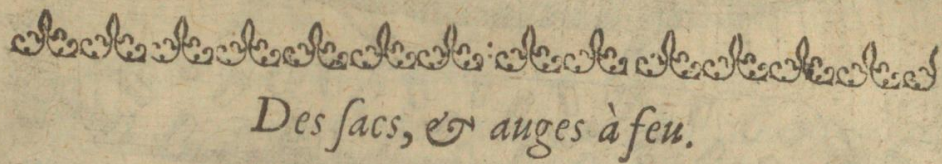 Des ſacs, & auges à feu.